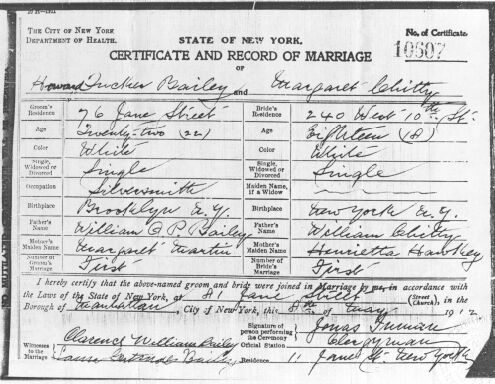 THE CITY OF NEW YORK
DEPARTMENT OF HEALTH.
STATE OF NEW YORK.
No. of Certificate
CERTIFICATE AND RECORD OF MARRIAGE
10607
OF
Howard Tucker Bailey and Margaret Chitty
Groom's Residence 76 Jane Street Bride's Residence 240 West 10th St.
Age Twenty-two (22) Age Eighteen (18)
Color White Color White
Single, Widowed or Divorced Single Single, Widowed or Divorced Single
Occupation Silversmith Maiden Name, if a Widow
Birthplace Brooklyn N.Y. Birthplace New York N.Y.
Father's Name William C. P. Bailey Father's Name William Chitty
Mother's Maiden Name Margaret Martin Mother's Maiden Name Henrietta Hawkey
Number of Groom's Marriage First Number of Bride's Marriage First
I hereby certify that the above-named groom and bride were joined in Marriage by me, in accordance with
the Laws of the State of New York, at 81 Jane Street (Street Church), in the
Borough of Manhattan, City of New York, this 8th of May 1912
Signature of person performing the Ceremony Jonas Inman
Witnesses to the Marriage Clarence William Bailey Official Station Clergyman
Laura Gertrude Bailey Residence 11 Jane St. New York